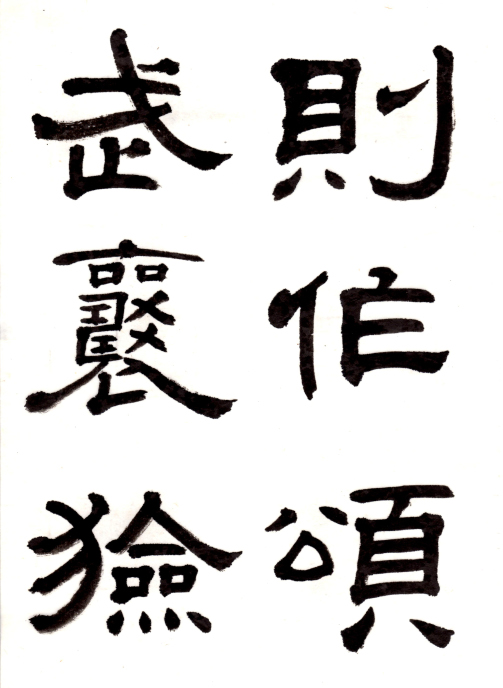 則作頌
武襄獫